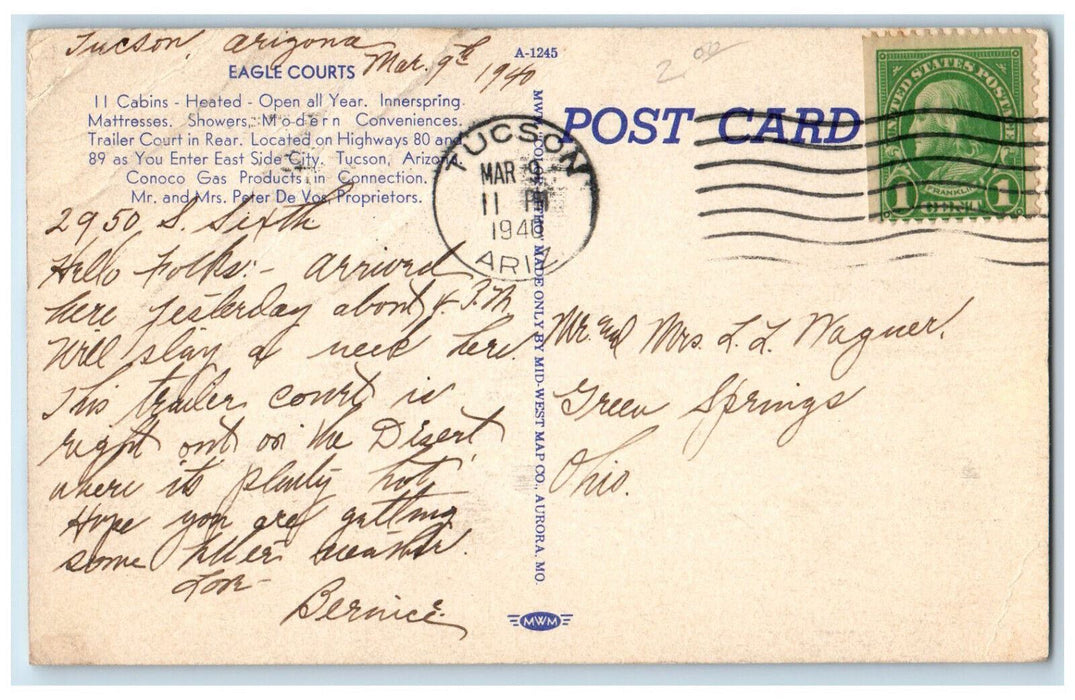 Tucson, Arizona
Mar. 9th 1940
A-1245
EAGLE COURTS
11 Cabins - Heated - Open all Year. Innerspring
Mattresses. Showers, Modern Conveniences.
Trailer Court in Rear. Located on Highways 80 and
89 as You Enter East Side City. Tucson, Arizona
Conoco Gas Products in Connection.
Mr. and Mrs. Peter De Vos, Proprietors.
2950 S. Sixth
Hello Folks:- Arrived
here yesterday about 4 P.M.
Will stay a week here.
This trailer court is
right out on the Desert,
where its plenty hot,
Hope you are getting
some better weather.
Love-
Bernice.
TUCSON
MAR 9
11 PM
1940
ARIZ.
MWM COLOR-LITHO. MADE ONLY BY MID-WEST MAP CO., AURORA, MO.
MWM
POST CARD
2 00
UNITED STATES POSTAGE
FRANKLIN
1 CENT 1
Mr. and Mrs. L. L. Wagner,
Green Springs
Ohio.